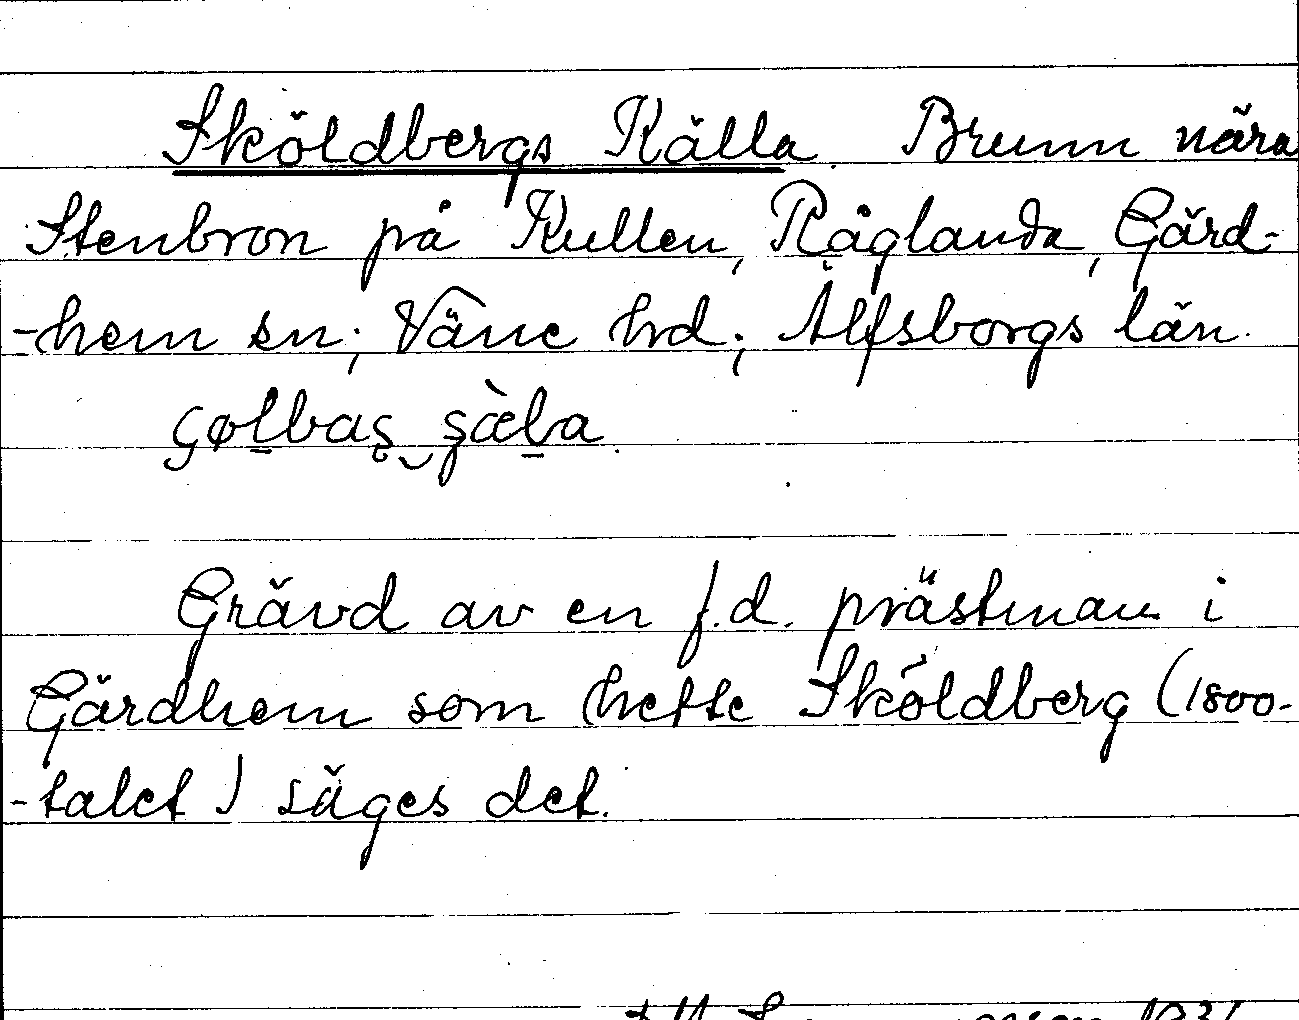 Sköldbergs Källa. Brunn nära
Stenbron på Kullen, Råglanda, Gärd-
-hem sn; Väne hd; Älfsborgs län.
Grävd av en f.d. prästman i
Gärdhem som hette Sköldberg (1800-
-talet) säges det.